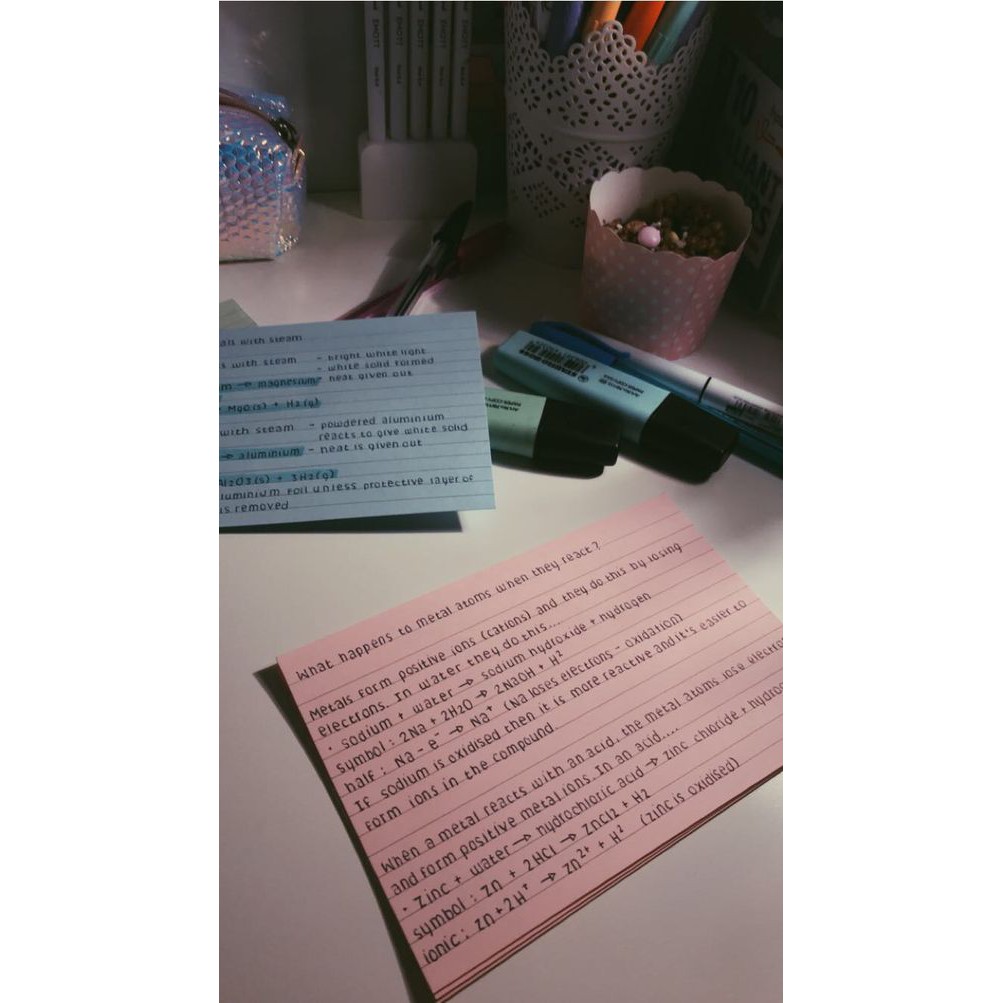 with steam
with steam - bright white light
- white solid formed
→ magnesium - heat given out
MgO(s) + H2(g)
with steam - powdered aluminium
reacts to give white solid
→ aluminium - heat is given out
2O3(s) + 3H2(g)
foil unless protective layer of
is removed
What happens to metal atoms when they react?
Metals form positive ions (cations) and they do this by losing
electrons. In water they do this....
· sodium + water → sodium hydroxide + hydrogen
symbol: 2Na + 2H2O → 2NaOH + H²
half: Na - e⁻ → Na⁺ (Na loses electrons - oxidation)
If sodium is oxidised then it is more reactive and it's easier to
form ions in the compound.
When a metal reacts with an acid, the metal atoms lose electro
and form positive metal ions. In an acid....
· Zinc + water → hydrochloric acid → zinc chloride + hydro
symbol: Zn + 2HCl → ZnCl2 + H2
ionic: Zn + 2H⁺ → Zn²⁺ + H² (zinc is oxidised)